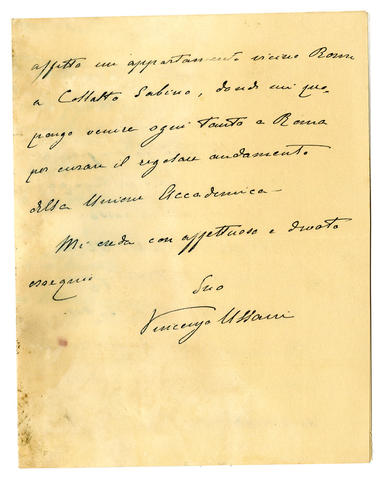 affitto un appartamento vicino Roma
a Collalto Sabino, donde mi pro-
pongo venire ogni tanto a Roma
per curare il regolare andamento
della Unione Accademica—
Mi creda con affettuoso e devoto
ossequio
Suo
Vincenzo Ussani